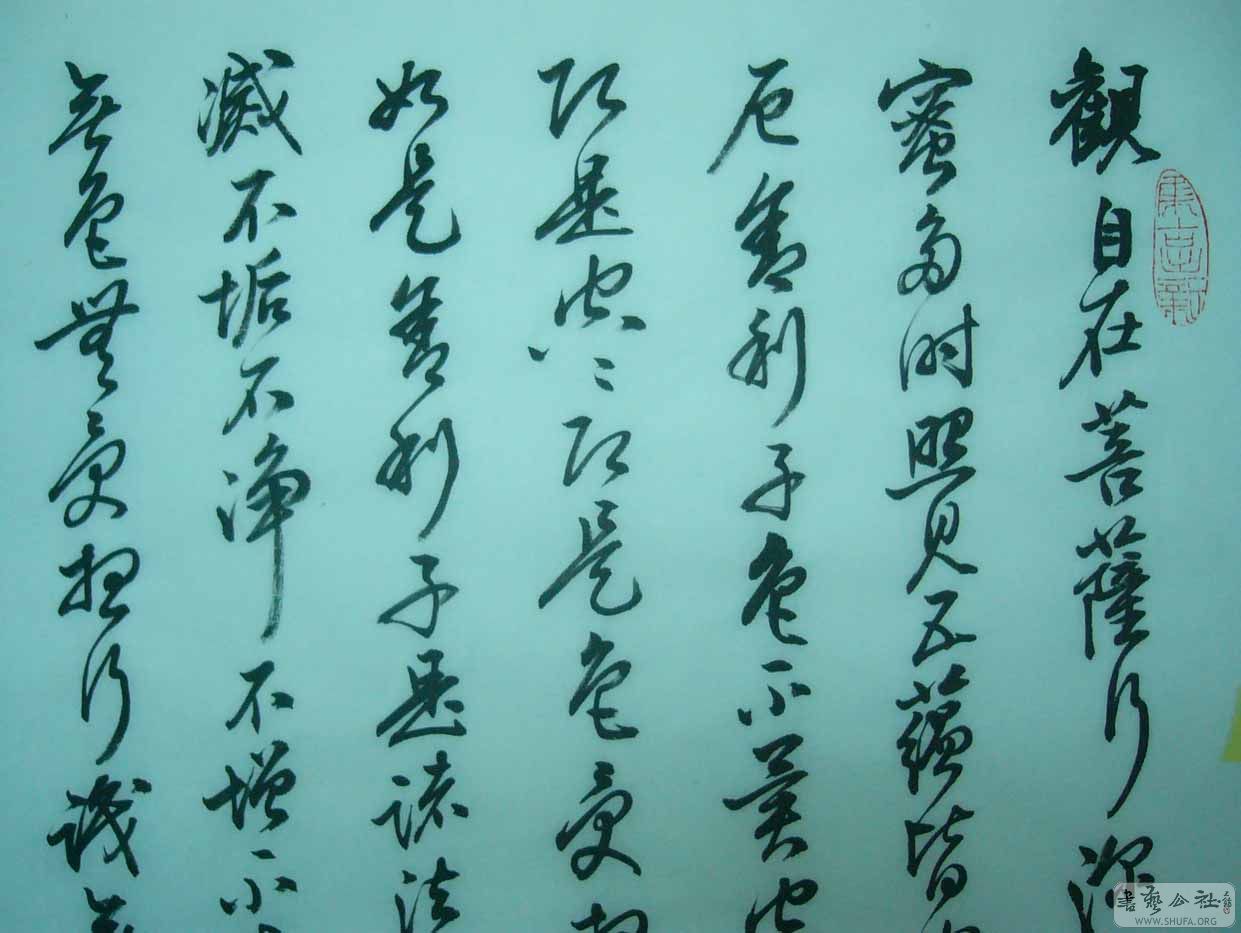 觀自在菩薩行深
蜜多时照見五蘊皆
厄舍利子色不異空
即是空空即是色受想
如是舍利子是諸法
滅不垢不淨不增不
無色無受想行識無
書藝公社
WWW.SHUFA.ORG